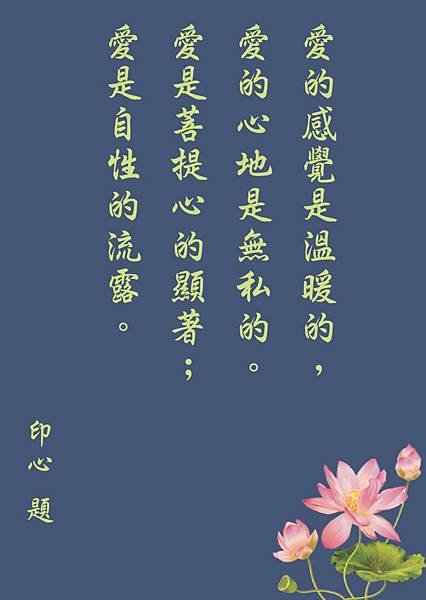 愛的感覺是溫暖的，
愛的心地是無私的。
愛是菩提心的顯著；
愛是自性的流露。
印心 題